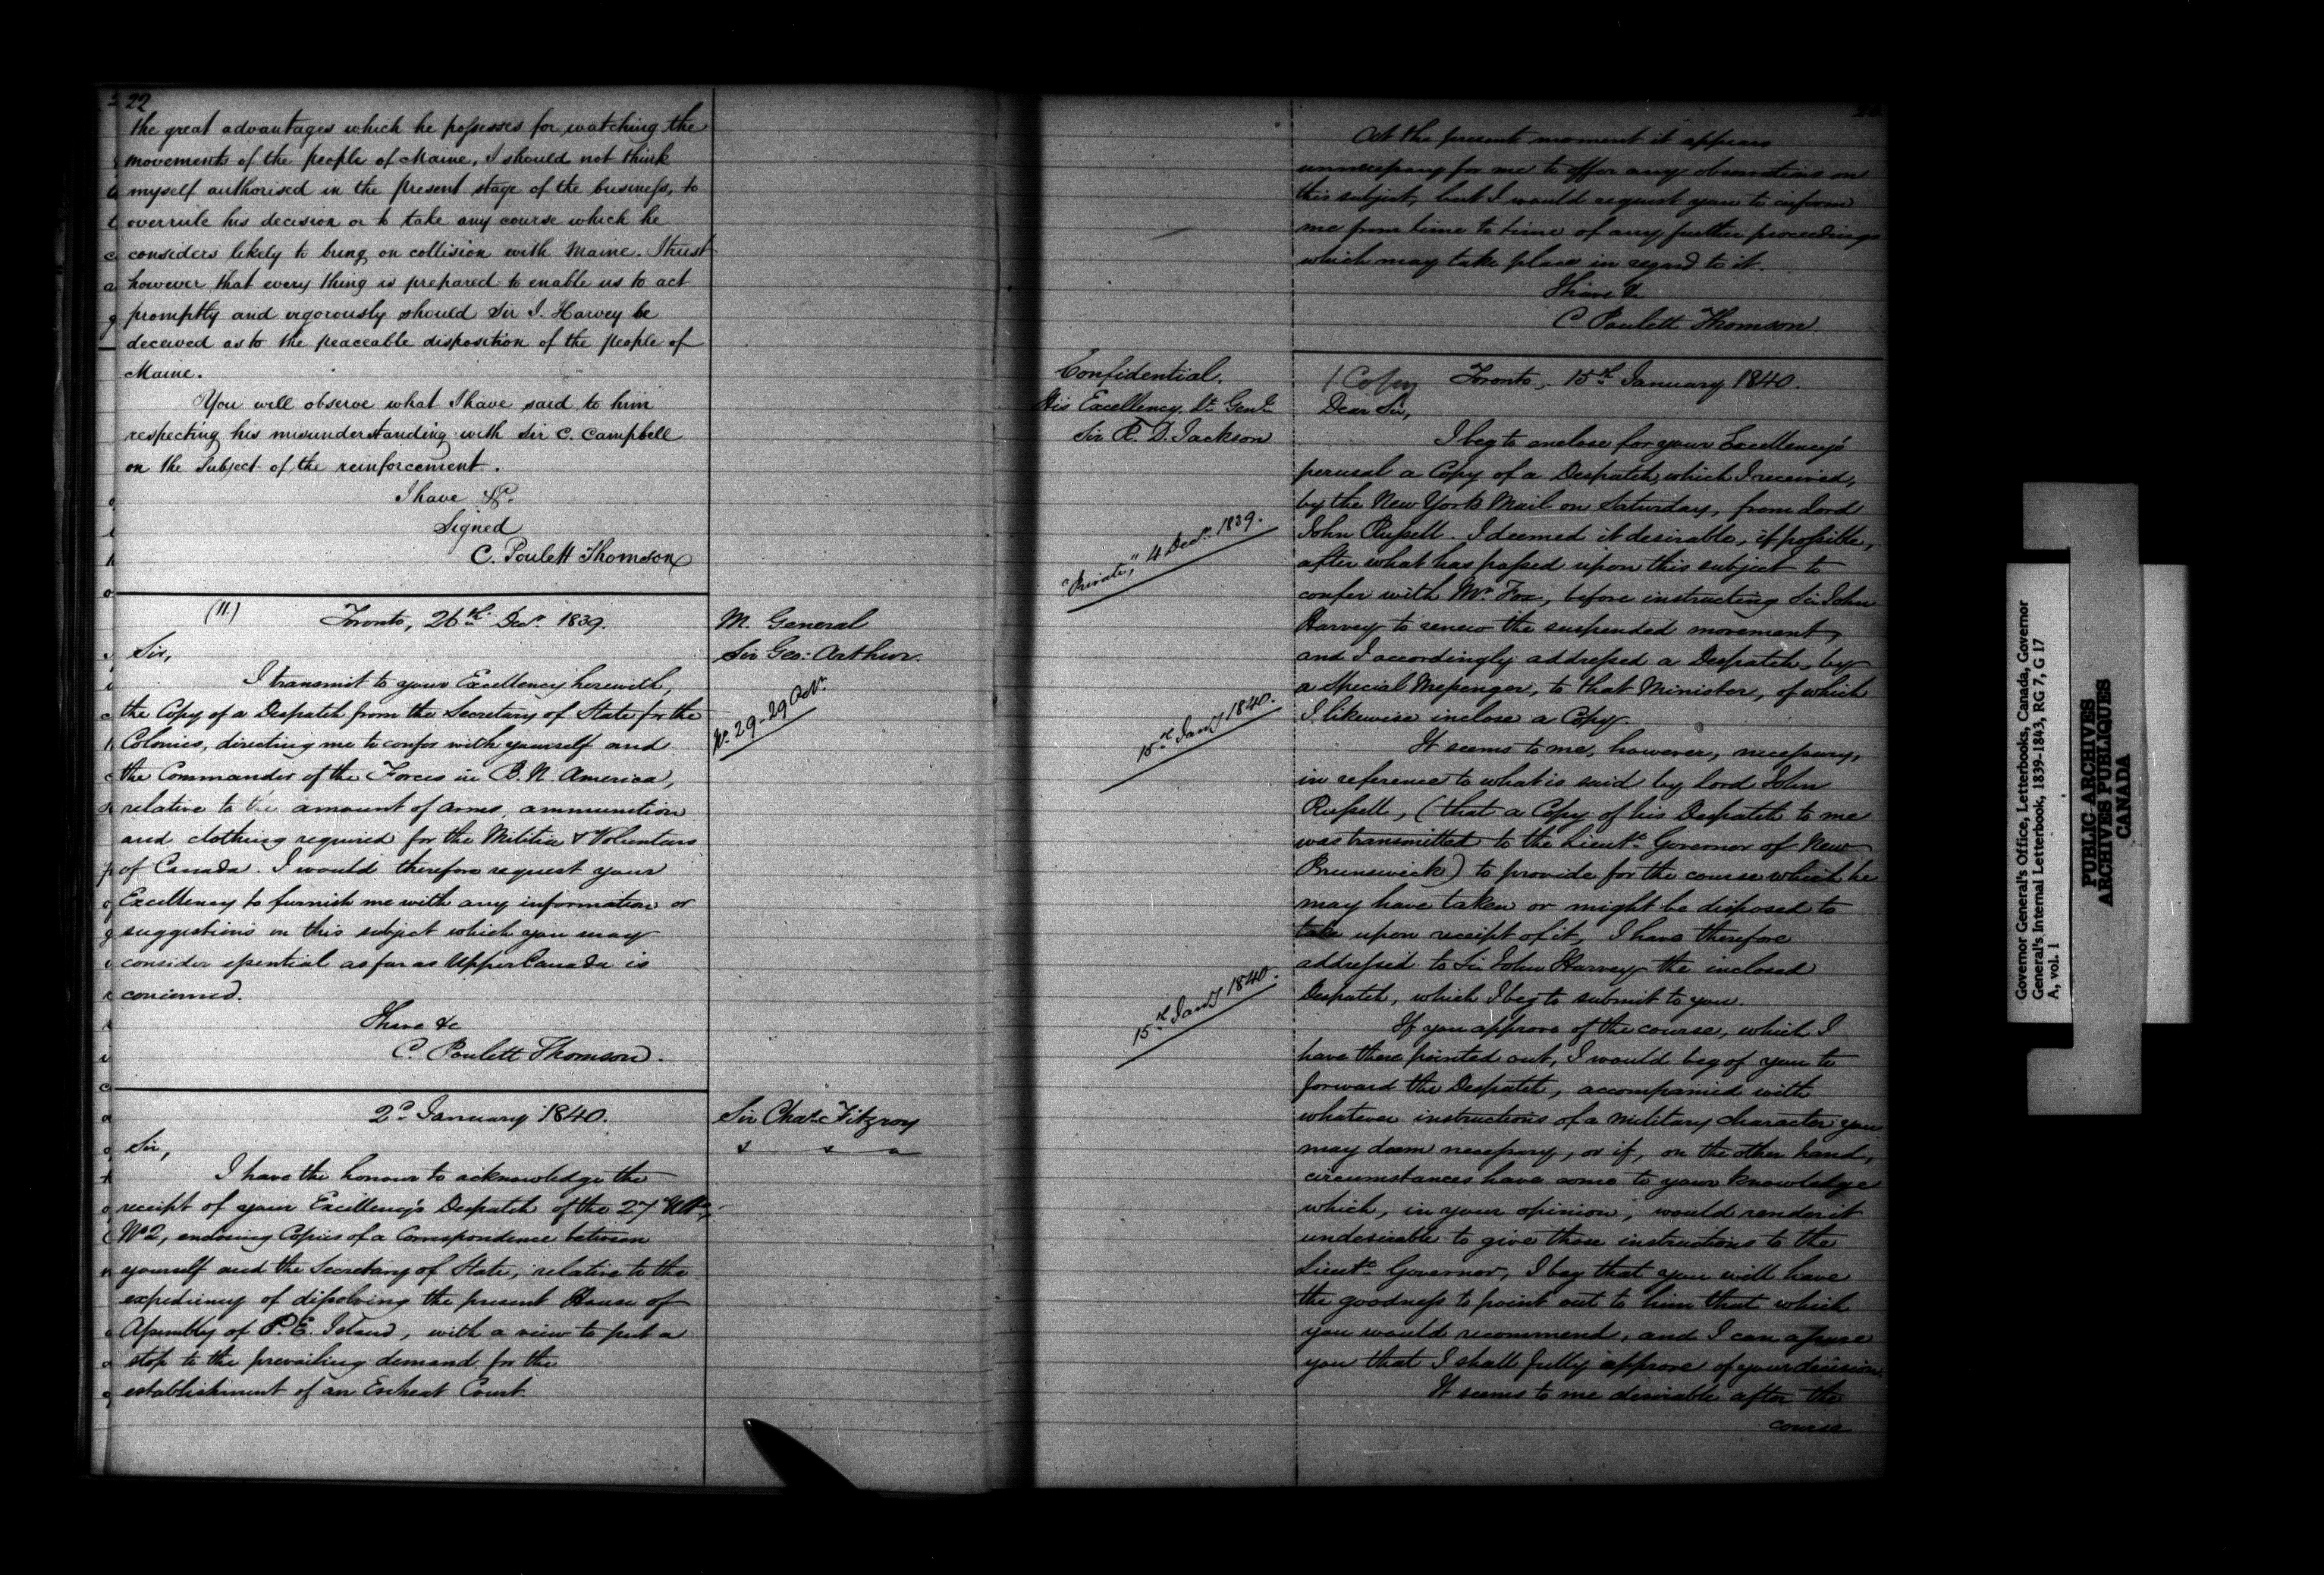 22
the great advantages which he possesses for watching the
movements of the people of Maine, I should not think
myself authorised in the present stage of the business, to
overrule his decision or to take any course which he
considers likely to bring on collision with Maine. I trust
however that every thing is prepared to enable us to act
promptly and vigorously should Sir J. Harvey be
deceived as to the peaceable disposition of the people of
Maine.
You will observe what I have said to him
respecting his misunderstanding with Sir C. Campbell
on the Subject of the reinforcement.
I have &c.
Signed
C. Poulett Thomson
(11.) Toronto, 26th Decr. 1839.
M. General
Sir Geo: Arthur.
Sir,
I transmit to your Excellency herewith,
the Copy of a Despatch from the Secretary of State for the
No. 29-29 Octr.
Colonies, directing me to confer with yourself and
the Commander of the Forces in B. N. America,
relative to the amount of arms, ammunition
and clothing required for the Militia & Volunteers
of Canada. I would therefore request your
Excellency to furnish me with any information or
suggestions on this subject which you may
consider essential as far as Upper Canada is
concerned.
I have &c
C. Poulett Thomson.
2d January 1840.
Sir Chas. Fitzroy
Sir,
I have the honour to acknowledge the
receipt of your Excellency's Despatch of the 27 Ulto.
No 2, enclosing Copies of a Correspondence between
yourself and the Secretary of State, relative to the
expediency of dissolving the present House of
Assembly of P. E. Island, with a view to put a
stop to the prevailing demand for the
establishment of an Escheat Court.
At the present moment it appears
unnecessary for me to offer any observations on
this subject, but I would request you to inform
me from time to time of any further proceedings
which may take place in regard to it.
I have &c
C Poulett Thomson
Confidential.
His Excellency Lt. Genl.
Sir R. D. Jackson
Copy Toronto, 15th January 1840.
Dear Sir,
I beg to enclose for your Excellency's
perusal a Copy of a Despatch, which I received,
by the New York Mail on Saturday, from Lord
"Private," 4 Decr. 1839.
John Russell. I deemed it desirable, if possible,
after what has passed upon this subject to
confer with Mr. Fox, before instructing Sir John
Harvey to renew the suspended movement,
and I accordingly addressed a Despatch, by
a Special Messenger, to that Minister, of which
15th Jany 1840.
I likewise inclose a Copy.
It seems to me, however, necessary,
in reference to what is said by Lord John
Russell, (that a Copy of his Despatch to me
was transmitted to the Lieut. Governor of New
Brunswick) to provide for the course which he
may have taken or might be disposed to
take upon receipt of it, I have therefore
addressed to Sir John Harvey the inclosed
15th Jany 1840.
Despatch, which I beg to submit to you.
If you approve of the course, which I
have there pointed out, I would beg of you to
forward the Despatch, accompanied with
whatever instructions of a military character you
may deem necessary, or if, on the other hand,
circumstances have come to your knowledge
which, in your opinion, would render it
undesirable to give those instructions to the
Lieut. Governor, I beg that you will have
the goodness to point out to him that which
you would recommend, and I can assure
you that I shall fully approve of your decision.
It seems to me desirable after the
course
Governor General's Office, Letterbooks, Canada, Governor
General's Internal Letterbook, 1839-1843, RG 7, G 17
A, vol. 1
PUBLIC ARCHIVES
ARCHIVES PUBLIQUES
CANADA